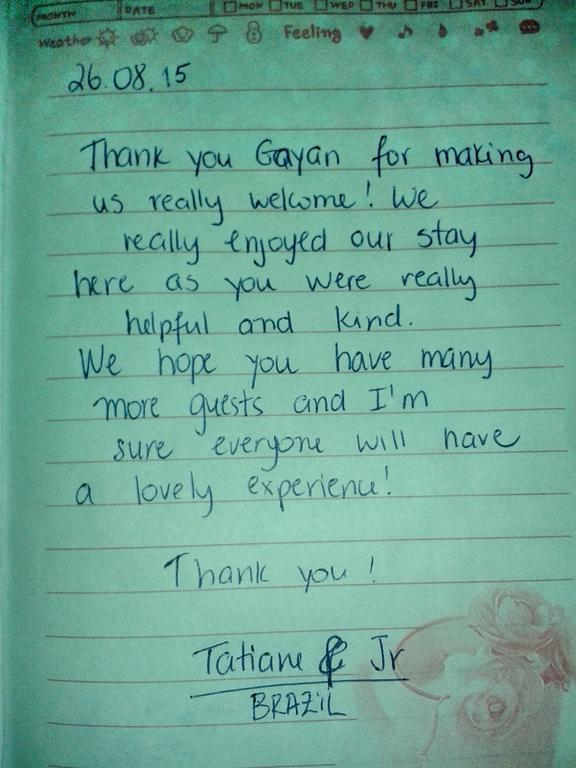 MONTH DATE MON TUE WED THU FRI SAT SUN
Weather Feeling
26.08.15
Thank you Gayan for making
us really welcome! We
really enjoyed our stay
here as you were really
helpful and kind.
We hope you have many
more guests and I'm
sure everyone will have
a lovely experience!
Thank you!
Tatiane & Jr
BRAZIL